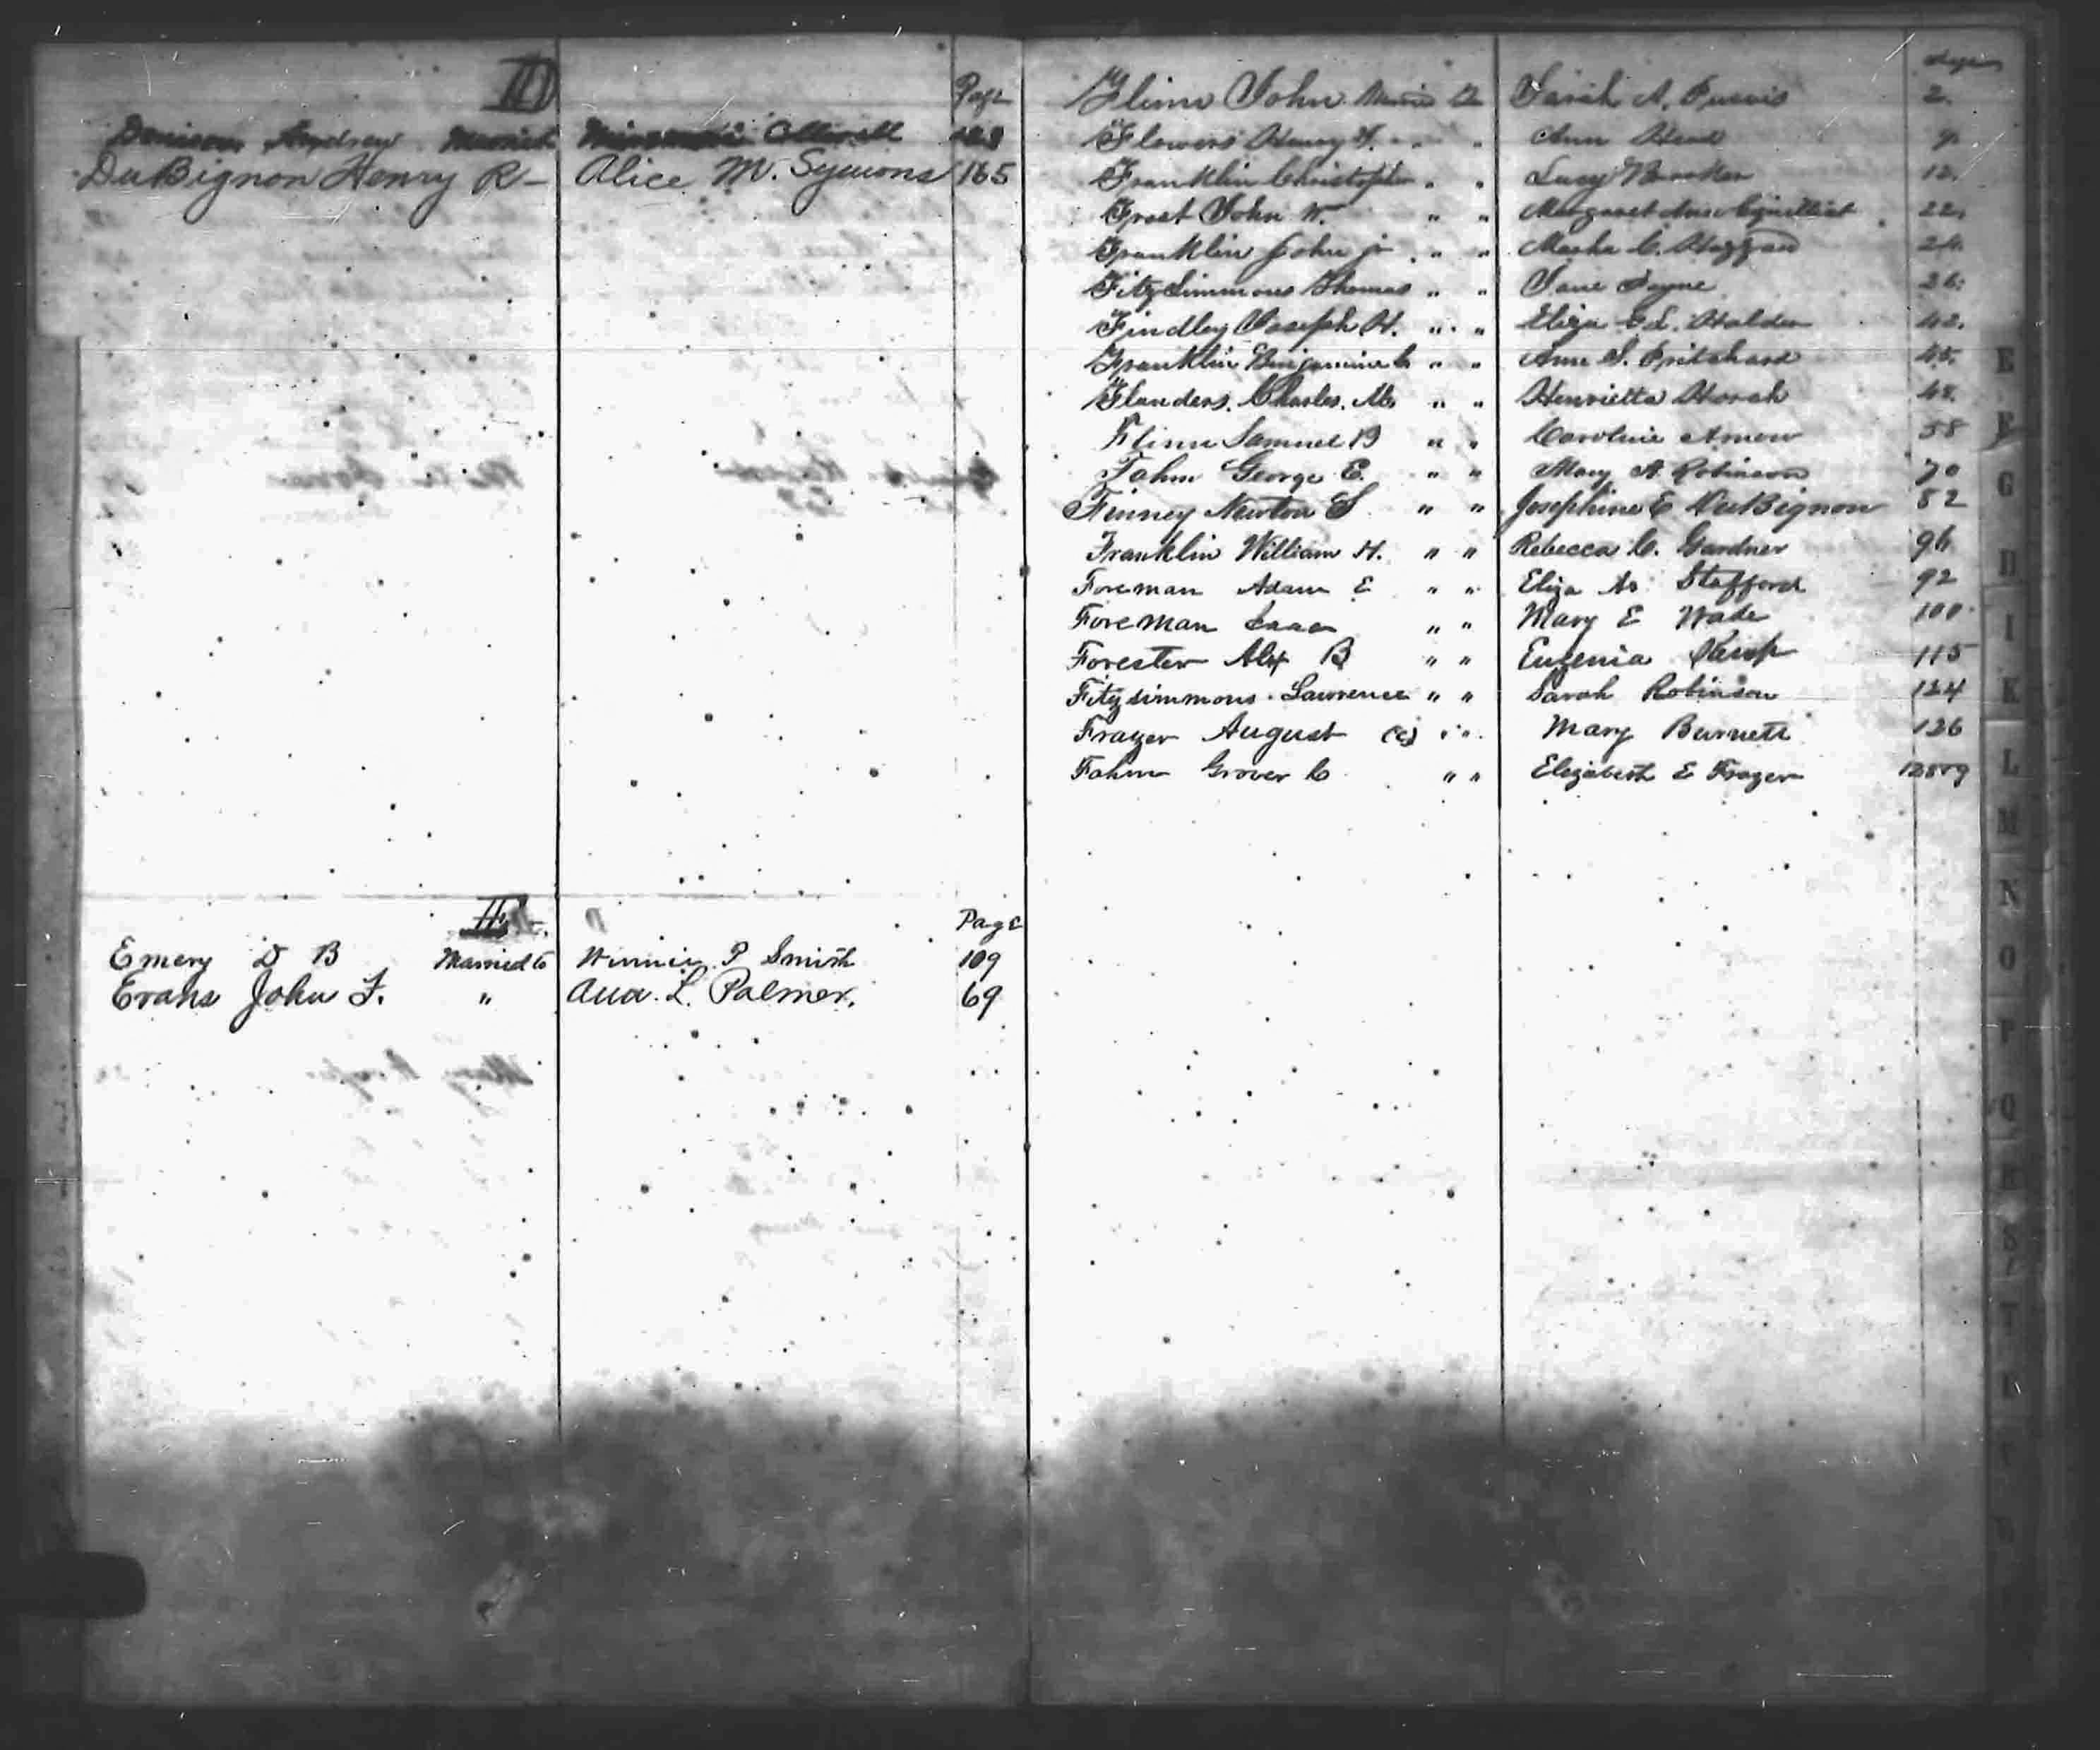 D
Page
Denison Andrew Married
DuBignon Henry R - Alice M. Symons 165
E
Page
Emery D B Married to Winnie P Smith 109
Evans John F. " Ava L. Palmer. 69
Page
John Married to Sarah A. 2.
Flowers Henry " " Ann Head
Franklin Christopher " " Lucy 12.
Frost John W. " " Margaret Ann 22.
Franklin John jr " " C. 24.
Fitzsimmons Thomas " " Jane Payne
Findley Joseph H. " " Eliza 42.
Franklin Benjamin C " " Ann S. Pritchard 45.
Flanders Charles M. " " Henrietta Horah 48.
Flinn Samuel B " " Caroline Arnow 58
Fahm George E. " " Mary A. Robinson 70
Finney Newton S " " Josephine E DuBignon 82
Franklin William H. " " Rebecca C. Gardner 96
Foreman Adam E " " Eliza Stafford 92
Foreman Isaac " " Mary E Wade 100
Forester Alex B " " Eugenia 115
Fitzsimmons Lawrence " " Sarah Robinson 124
Frazer August (c) " " Mary Burnett 126
Fahm Grover C " " Elizabeth E Frazer
E
F
G
H
I
K
L
M
N
O
P
Q
R
S
T